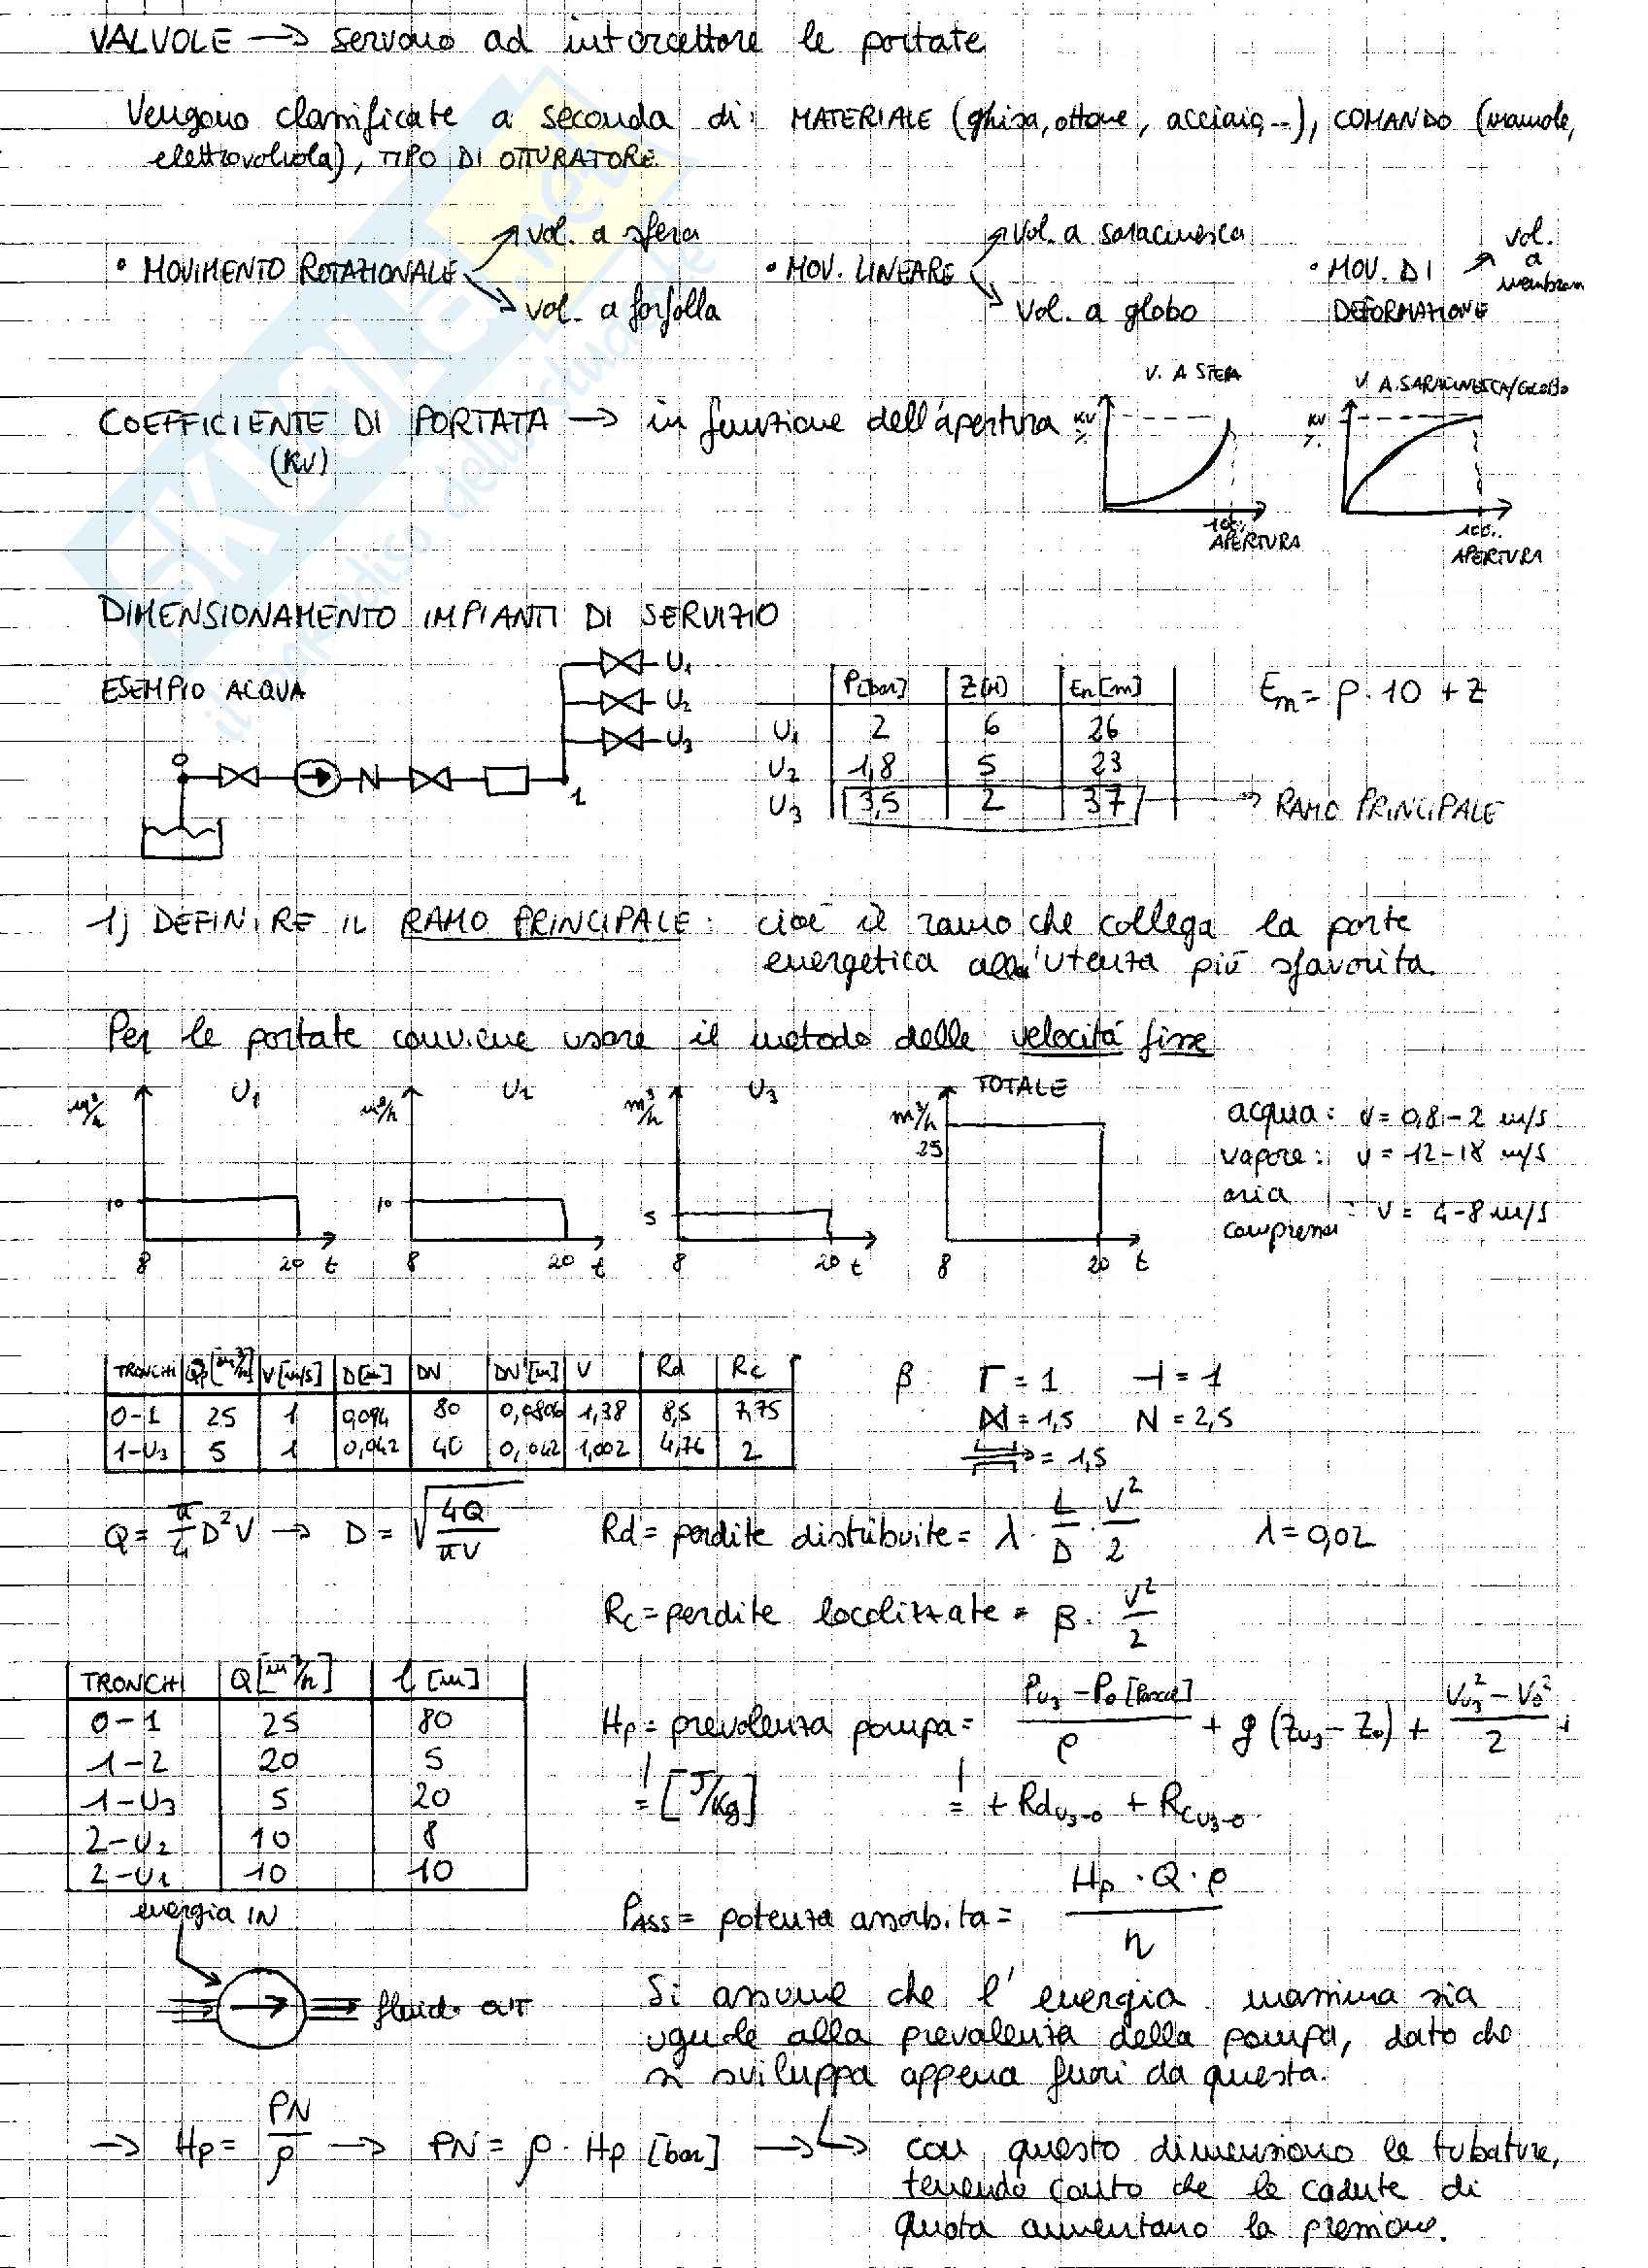 VALVOLE → servono ad intercettare le portate
Vengono classificate a seconda di: MATERIALE (ghisa, ottone, acciaio, ...), COMANDO (manuale,
elettrovalvola), TIPO DI OTTURATORE
• MOVIMENTO ROTAZIONALE
val. a sfera
val. a farfalla
• MOV. LINEARE
val. a saracinesca
val. a globo
• MOV. DI
DEFORMAZIONE
val.
a
membran
COEFFICIENTE DI PORTATA → in funzione dell'apertura
(KV)
V. A SFERA
KV
%
100%
APERTURA
V. A SARACINESCA/GLOBO
KV
%
100%
APERTURA
DIMENSIONAMENTO IMPIANTI DI SERVIZIO
ESEMPIO ACQUA
U1
U2
U3
0
N
1
P[bar] Z[M] Em[m]
U1 2 6 26
U2 1,8 5 23
U3 3,5 2 37 → RAMO PRINCIPALE
Em = P · 10 + Z
1) DEFINIRE IL RAMO PRINCIPALE: cioè il ramo che collega la parte
energetica all'utenza più sfavorita.
Per le portate conviene usare il metodo delle velocità fisse
m³/h U1
10
8 20 t
m³/h U2
10
8 20 t
m³/h U3
5
8 20 t
m³/h TOTALE
25
8 20 t
acqua: v = 0,8 - 2 m/s
vapore: v = 12 - 18 m/s
aria
compressa : v = 4 - 8 m/s
TRONCHI Qp[m³/h] V[m/s] D[m] DN DN'[m] V Rd Rc
0-1 25 1 0,094 80 0,0806 1,38 8,5 7,75
1-U3 5 1 0,042 40 0,042 1,002 4,76 2
β: Γ = 1 ⊣ = 1
⋈ = 1,5 N = 2,5
= 1,5
Q = π/4 D² V → D = √(4Q/πV)
Rd = perdite distribuite = λ · L/D · V²/2 λ = 0,02
Rc = perdite localizzate = β · V²/2
TRONCHI Q[m³/h] l [m]
0-1 25 80
1-2 20 5
1-U3 5 20
2-U2 10 8
2-U1 10 10
Hp = prevalenza pompa = (PU3 - P0 [Pascal])/ρ + g (ZU3 - Z0) + (VU3² - V0²)/2 +
= [J/Kg] = + RdU3-0 + RcU3-0
PASS = potenza assorbita = Hp · Q · ρ / η
energia IN
fluido OUT
Si assume che l'energia massima sia
uguale alla prevalenza della pompa, dato che
si sviluppa appena fuori da questa.
→ Hp = PN/ρ → PN = ρ · Hp [bar] → con questo dimensiono le tubature,
tenendo conto che le cadute di
quota aumentano la pressione.